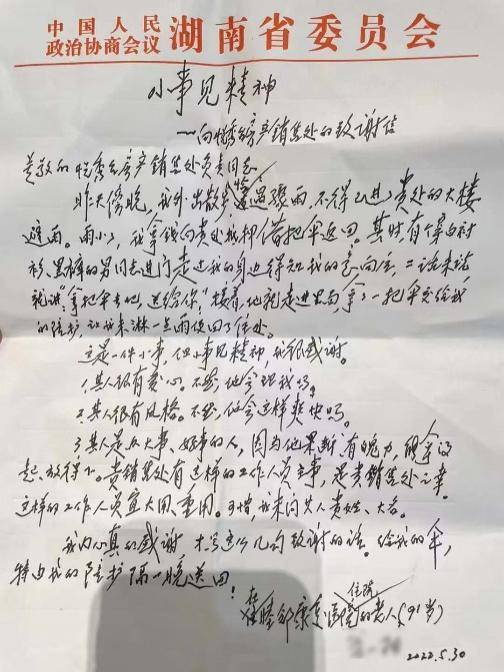 中国人民
政治协商会议 湖南省委员会
小事见精神
——向悦秀房产销售处的致谢信
尊敬的悦秀房产销售处负责同志:
昨天傍晚,我外出散步,遭遇骤雨,不得已进贵处的大楼
避雨。雨小了,我拿钱向贵处抵押借把伞返回。其时,有个穿白衬
衫、黑裤的男同志进门走过我的身边得知我的意向后,二话未说
就讲"拿把伞去吧,送给你!"接着,他就走进里面,拿了一把伞交给我
的陪护,让我未淋一点雨便回了住处。
这是一件小事,但小事见精神,我很感谢。
1.其人很有爱心。不然,他会理我吗。
2.其人很有风格。不然,他会这样爽快吗。
3.其人是办大事、好事的人,因为他果断有魄力,能拿得
起、放得下。贵销售处有这样的工作人员主事,是贵销售处之幸。
这样的工作人员宜大用、重用。可惜,我未问其人贵姓、大名。
我内心真的感谢,才写这么几句致谢的话。给我的伞,
特由我的陪护隔一晚送回!
在 住院
康复医院的老人(91岁)
2022.5.30